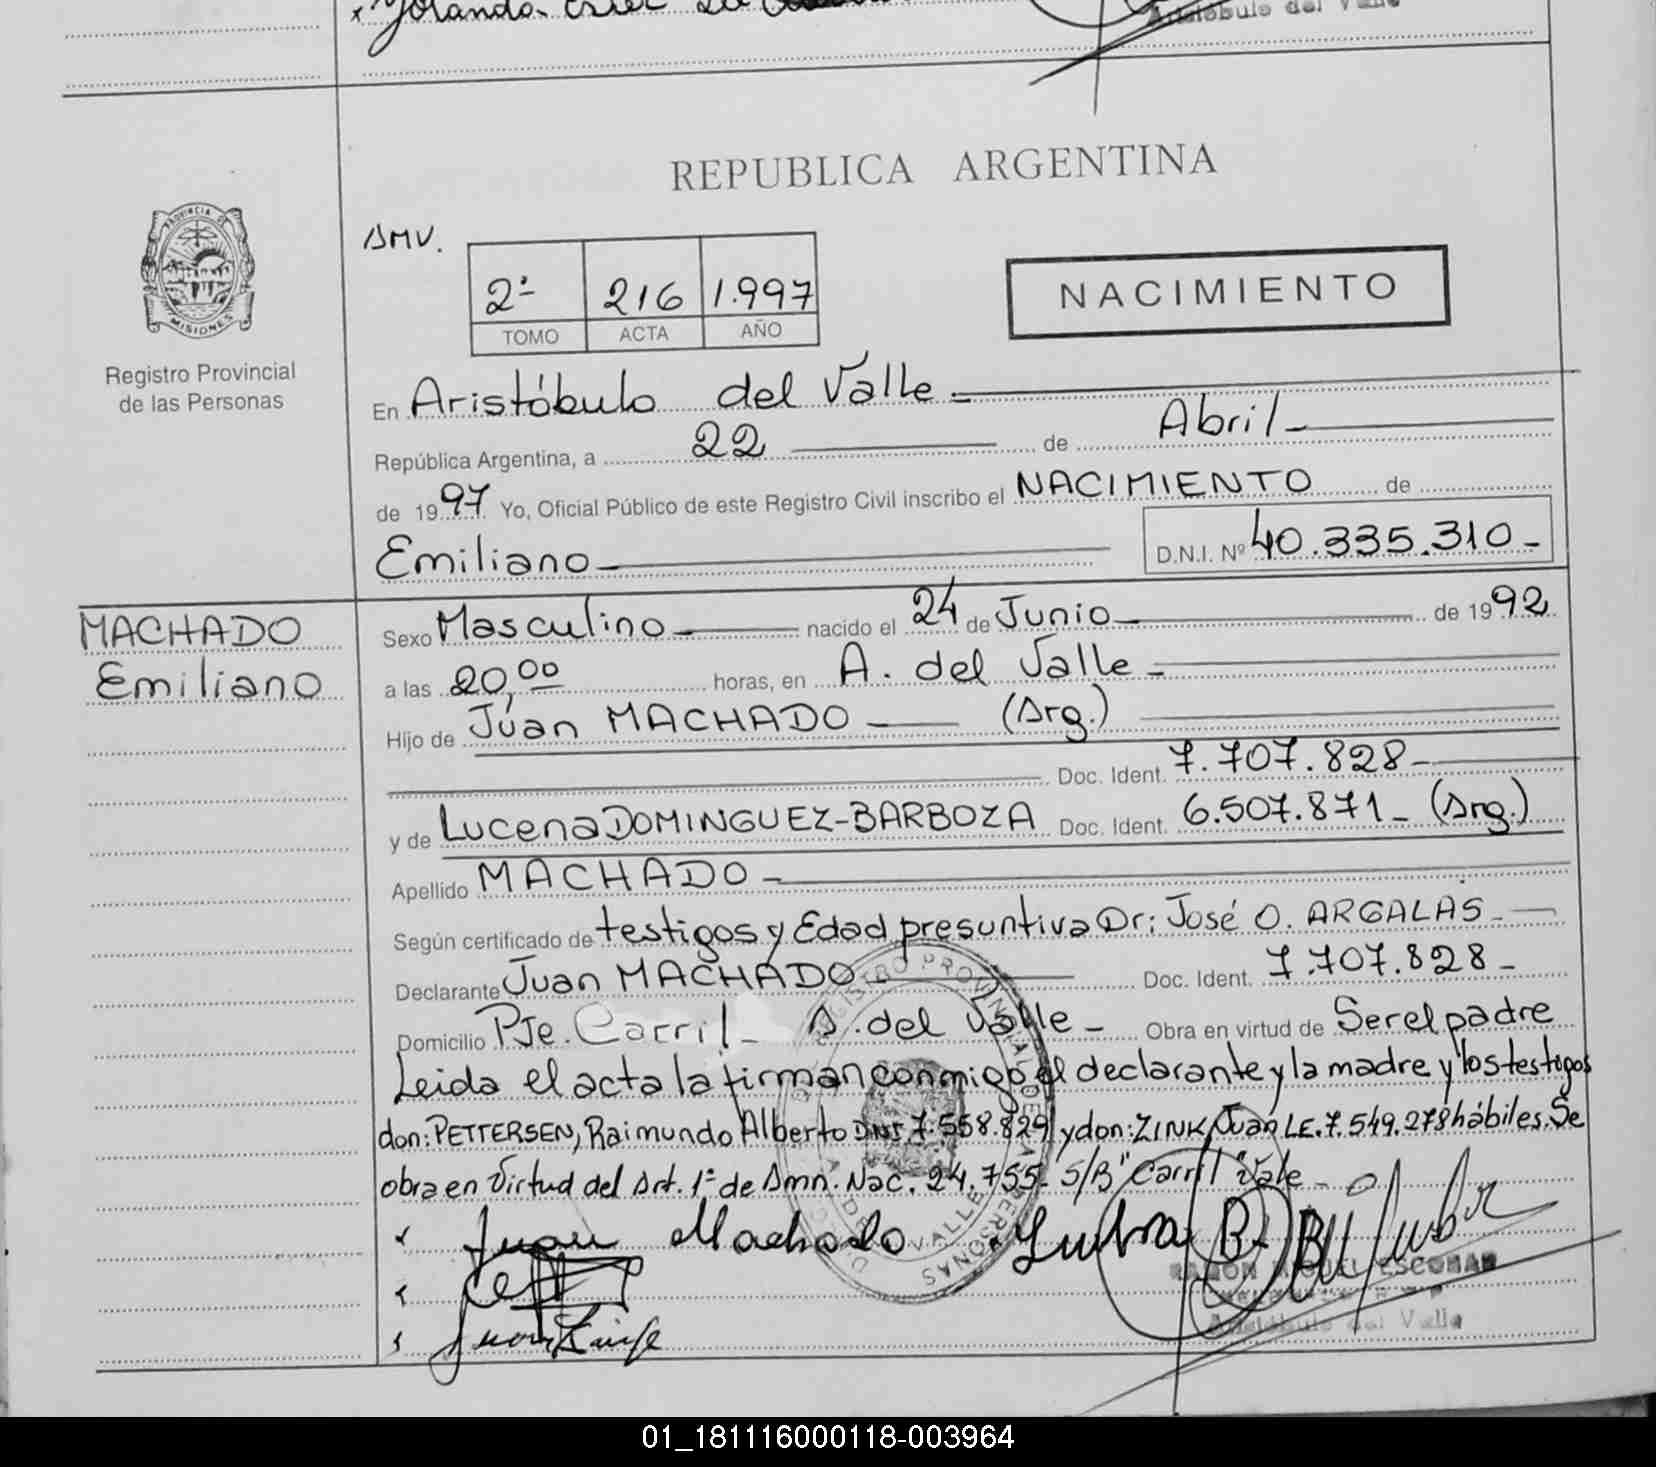 Yolanda Ester
Aristóbulo del Valle
REPUBLICA ARGENTINA
PROVINCIA DE
MISIONES
Registro Provincial
de las Personas
AMV.
2ª 216 1.997
TOMO ACTA AÑO
NACIMIENTO
En Aristóbulo del Valle
República Argentina, a 22 de Abril
de 1997 Yo, Oficial Público de este Registro Civil inscribo el NACIMIENTO de
Emiliano D.N.I. Nº 40.335.310
MACHADO
Emiliano
Sexo Masculino nacido el 24 de Junio de 1992
a las 20,00 horas, en A. del Valle
Hijo de Júan MACHADO (Arg.)
Doc. Ident. 7.707.828
y de Lucena DOMINGUEZ-BARBOZA Doc. Ident. 6.507.871 (Arg.)
Apellido MACHADO
Según certificado de testigos y Edad presuntiva Dr: José O. ARGALAS
Declarante Juan MACHADO Doc. Ident. 7.707.828
Domicilio Pje. Carril A. del Valle Obra en virtud de Ser el padre
Leida el acta la firman conmigo el declarante y la madre y los testigos
don: PETTERSEN, Raimundo Alberto DNI 7.558.829 y don: ZINK, Juan LE. 7.549.278 hábiles. Se
obra en Virtud del Art. 1º de Amn. Nac. 24.755. S/B "Carril" Vale
Juan Machado
RAMON MIGUEL ESCOBAR
Aristóbulo del Valle
01_181116000118-003964